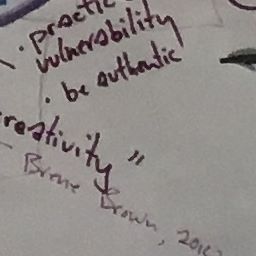 · practic
vulnerability
· be authentic
reativity"
- Brene Brown, 2012